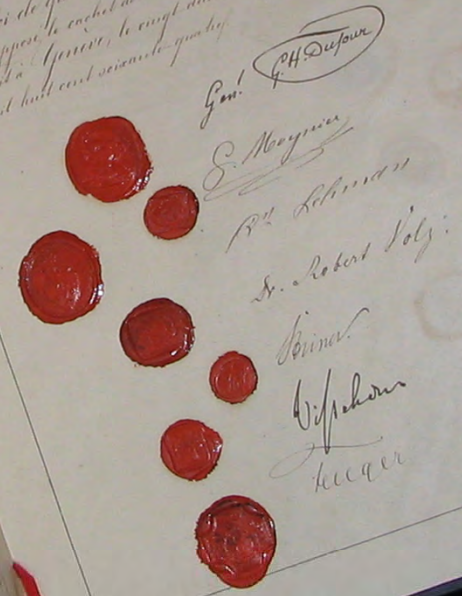 apposé le cachet de
à Genève, le vingt-deu
huit cent soixante-quatre
Genl G. H. Dufour
G. Moynier
Bn Lehman
Dr. Robert Volz.
Steiner
Visschers